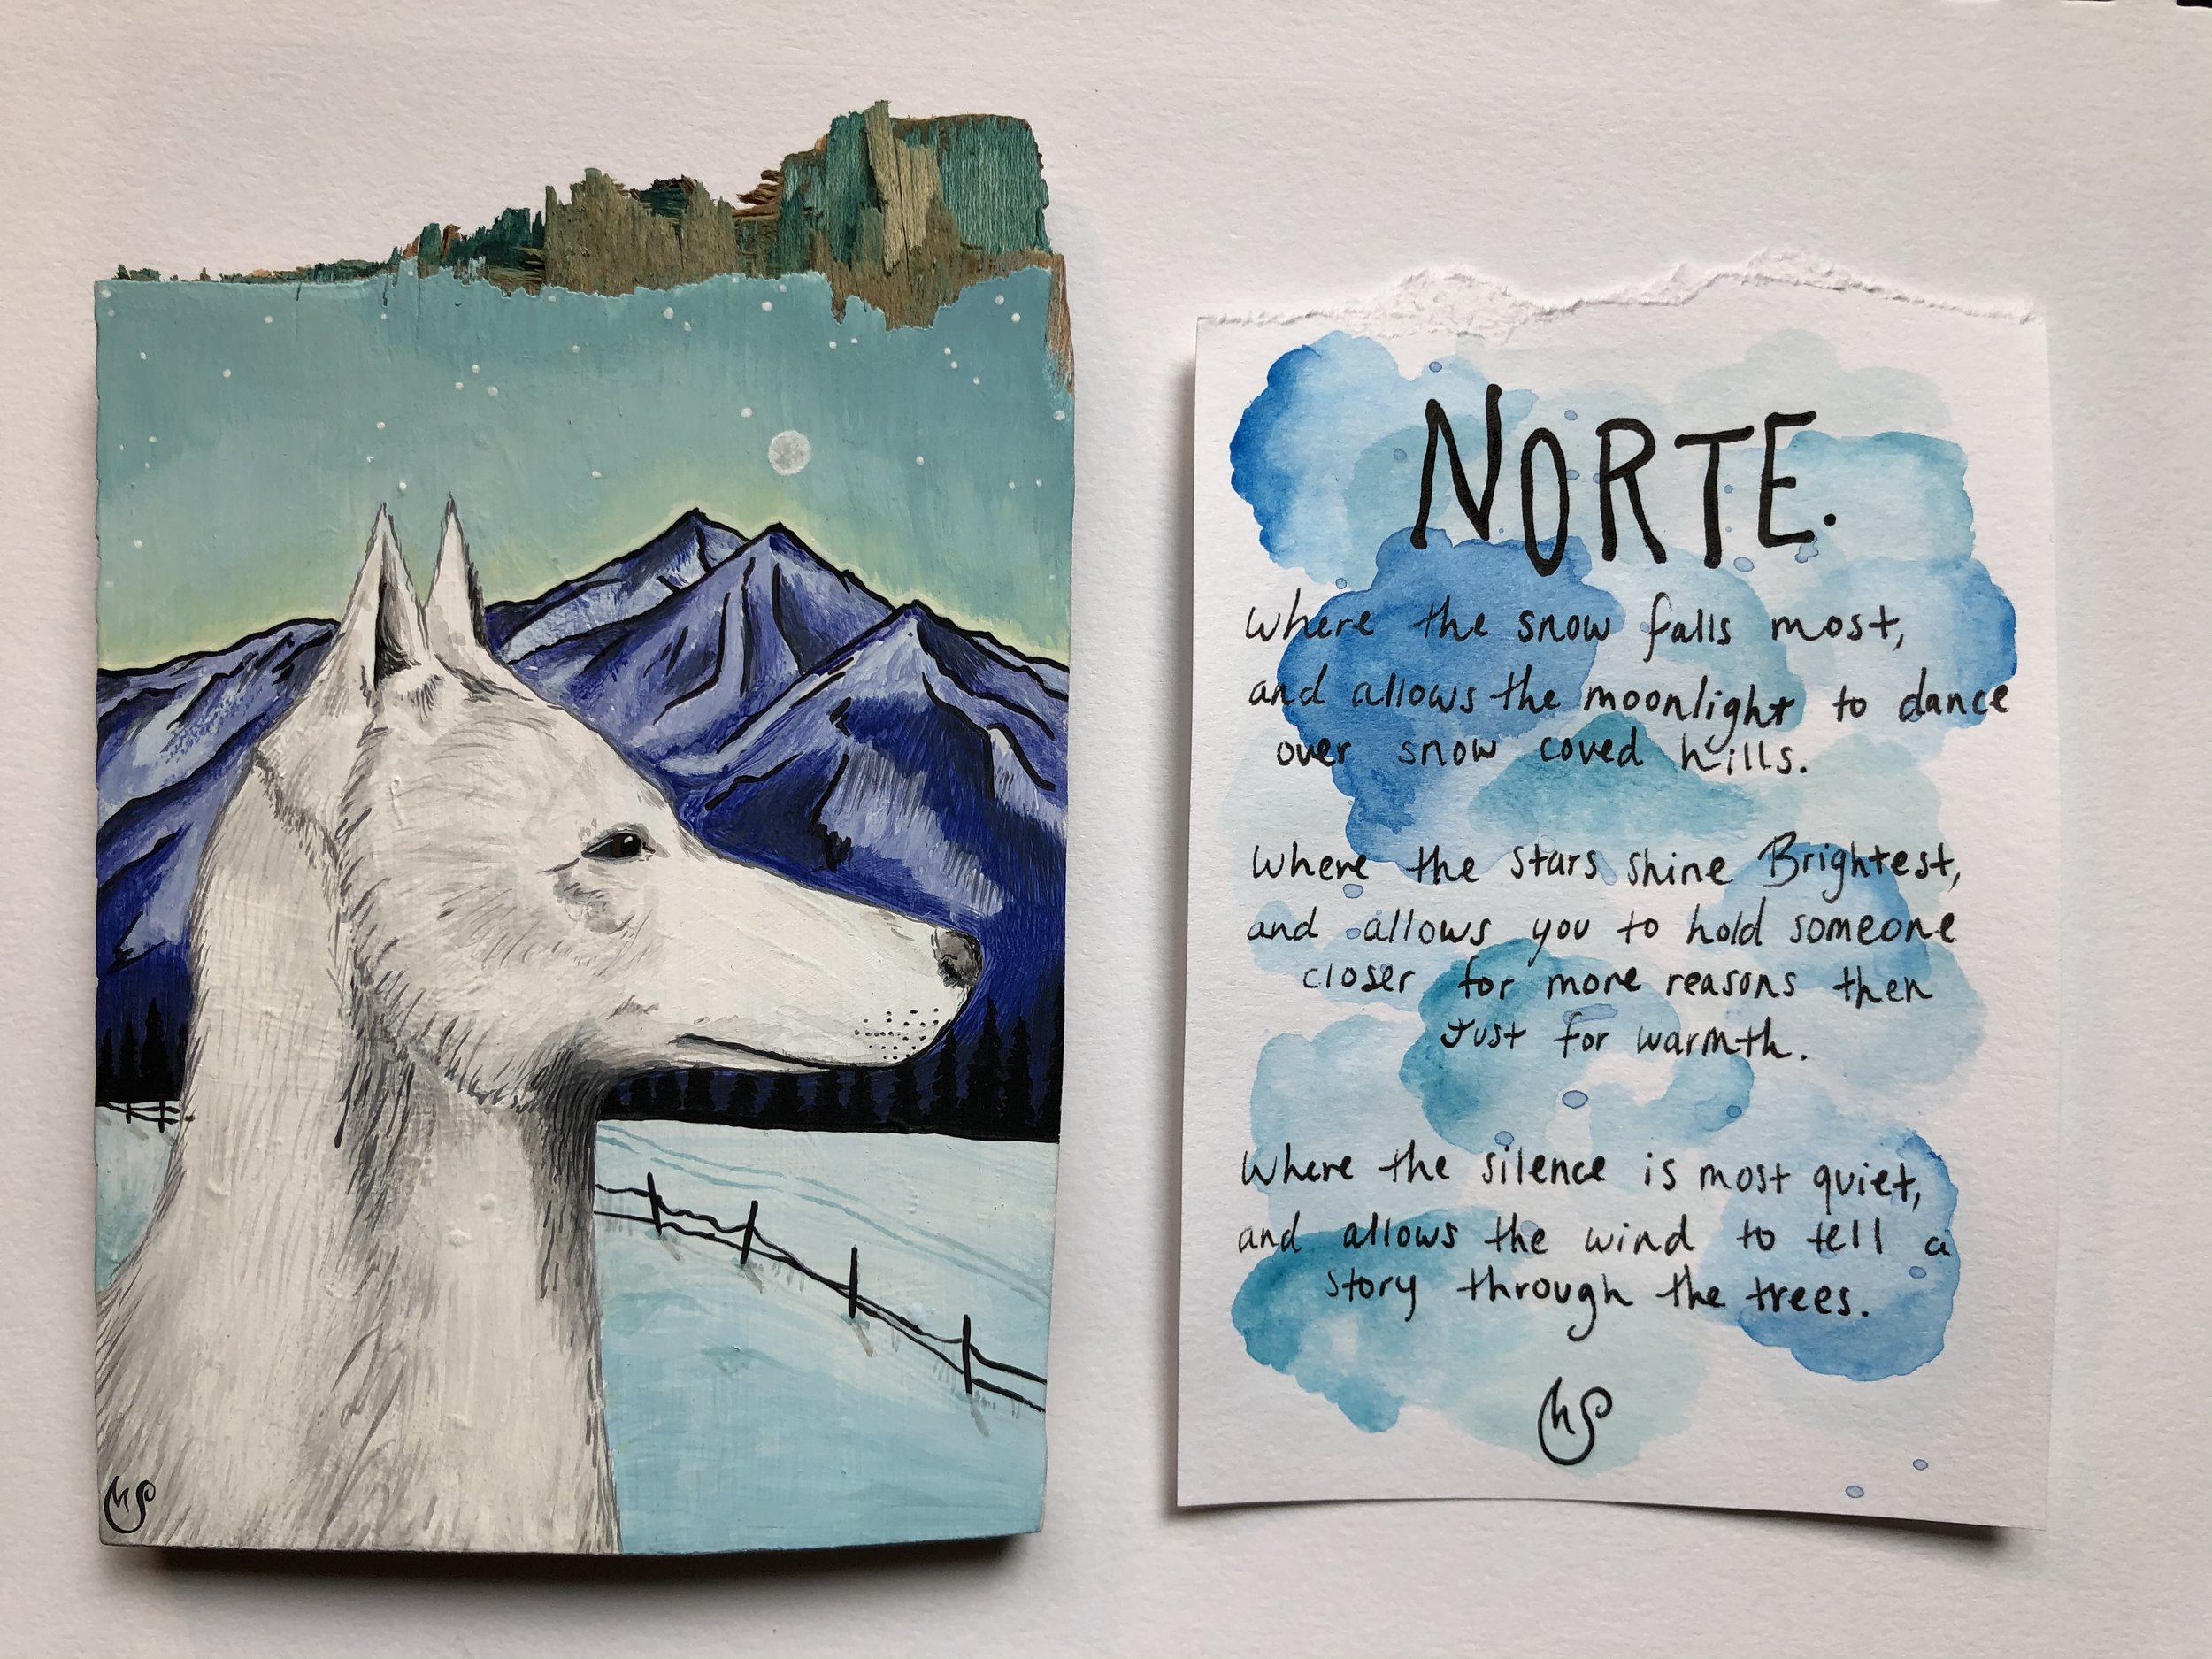 NORTE.
Where the snow falls most,
and allows the moonlight to dance
over snow coved hills.
Where the stars shine Brightest,
and allows you to hold someone
closer for more reasons then
Just for warmth.
Where the silence is most quiet,
and allows the wind to tell a
story through the trees.